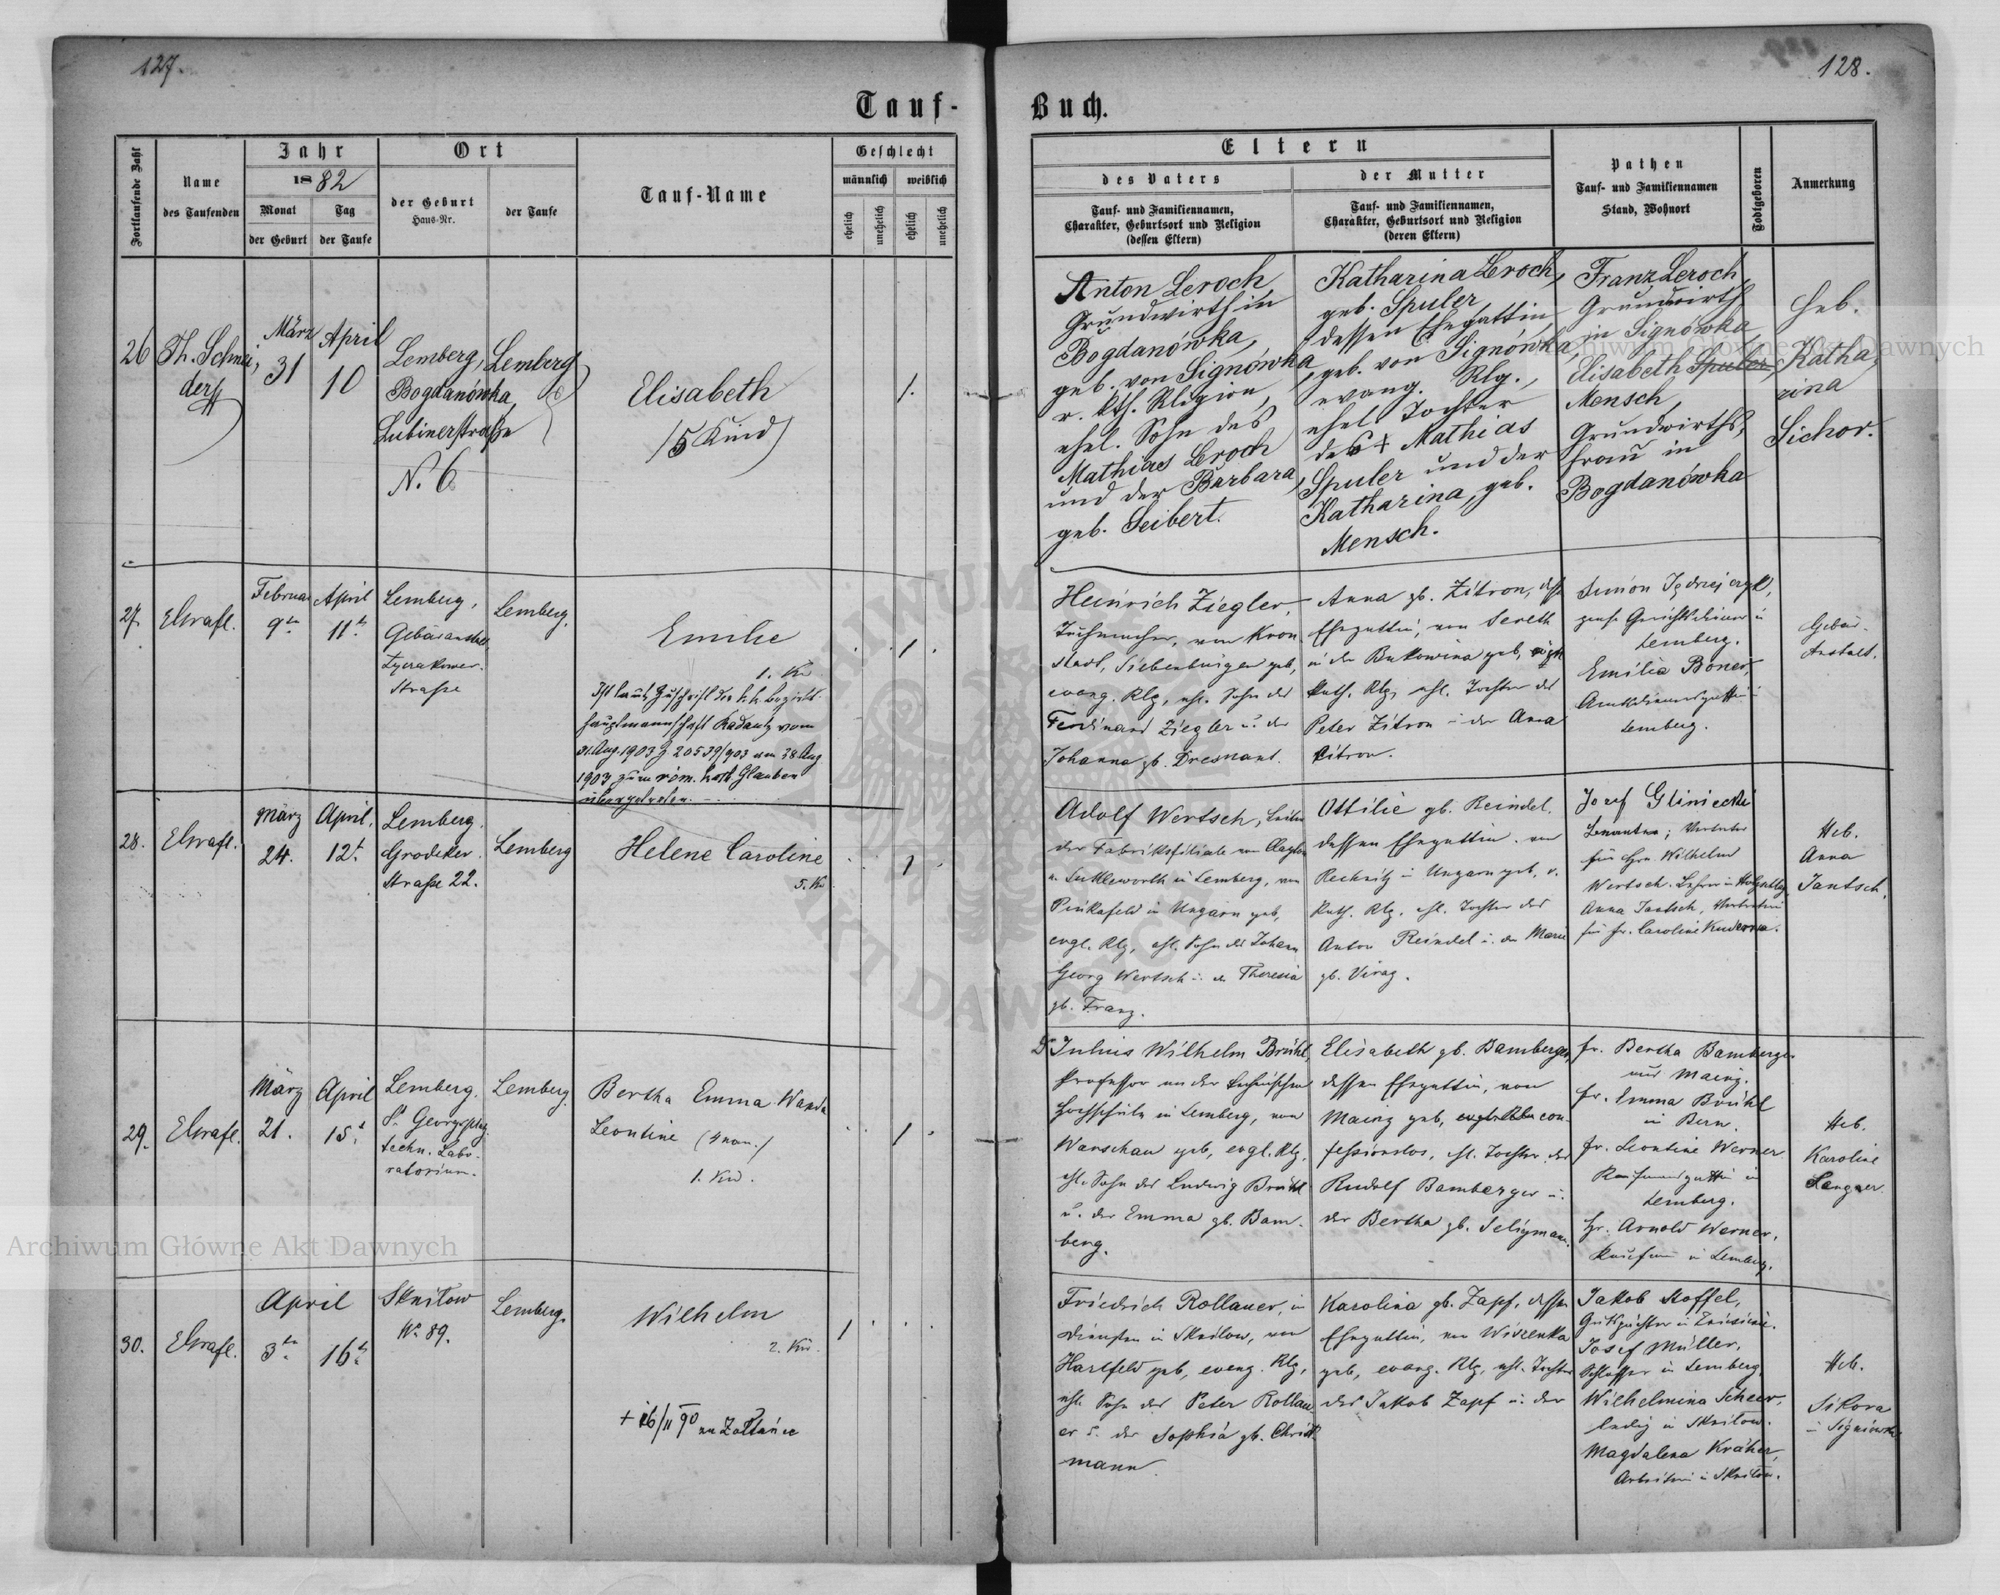 127.
128.
Tauf-
Buch.
Fortlaufende Zahl
Name
des Taufenden
Jahr
1882
Monat
der Geburt
Tag
der Taufe
Ort
der Geburt
Haus-Nr.
der Taufe
Tauf-Name
Geschlecht
männlich
weiblich
ehelich
unehelich
ehelich
unehelich
Eltern
des Vaters
Tauf- und Familiennamen,
Charakter, Geburtsort und Religion
(dessen Eltern)
der Mutter
Tauf- und Familiennamen,
Charakter, Geburtsort und Religion
(deren Eltern)
Pathen
Tauf- und Familiennamen
Stand, Wohnort
Todtgeboren
Anmerkung
26
Th. Schnei-
der
März
31
April
10
Lemberg,
Bogdanówka,
Lubinerstraße
N. 6
Lemberg
Elisabeth
(5 Kind)
1.
Anton Leroch
Grundwirth in
Bogdanówka,
geb. von Signówka
r. kth. Religion,
ehel. Sohn des
Mathias Leroch
und der Barbara
geb. Seibert.
Katharina Leroch,
geb. Spuler
dessen Ehegattin
geb. von Signówka,
evang. Rlg.,
ehel. Tochter
des + Mathias
Spuler und der
Katharina, geb.
Mensch.
Franz Leroch
Grundwirth
in Signówka
Elisabeth Spuler,
Mensch,
Grundwirths-
frau in
Bogdanówka
Heb.
Katha-
rina
Sichor.
27.
Februar
9
April
11
Lemberg,
Gebäranstalt
Lyczakower-
Straße
Lemberg.
Emilie
1. Kd
Ist laut Zuschrift der k. k. Bezirks-
hauptmannschaft Radautz vom
31. Aug. 1903 Z. 20539/903 am 28 Aug
1903 zum röm. kath. Glauben
übergetreten.
1
Heinrich Ziegler,
Tuchmacher, von Kron-
stadt, Siebenbürgen geb.,
evang. Rlg., ehl. Sohn des
Ferdinand Ziegler u. der
Johanna gb.
Anna gb. Zitron, dess
Ehegattin, von Sereth
in der Bukowina geb.,
kath. Rlg., ehl. Tochter des
Peter Zitron u. der Anna
Zitron.
Simon
Gerichtsdiener in
Lemberg.
Emilia Boner,
Amtsdienersgattin in
Lemberg.
Gebär-
Anstalt.
28.
März
24.
April,
12.
Lemberg.
Grodeker
Straße 22.
Lemberg
Helene Caroline
5. Kd
1
Adolf Wertsch, Leiter
der Fabriksfiliale von Clayton
u. Shuttleworth in Lemberg, von
Pinkafeld in Ungarn geb.,
evgl. Rlg., ehl. Sohn des Johann
Georg Wertsch u. der Theresia
gb. Franz.
Ottilie gb. Reindel.
dessen Ehegattin von
Rechnitz in Ungarn geb., r.
kath. Rlg., ehl. Tochter des
Anton Reindel u. der Marie
gb. Virag.
Josef Gliniecki
Beamter; Vertreter
für Hrn Wilhelm
Wertsch, Lehrer in
Anna Jantsch, Vertreterin
für Fr. Caroline
Heb.
Anna
Jantsch.
29.
März
21.
April
15.
Lemberg.
St. Georgsplatz
techn. Labo-
ratorium.
Lemberg.
Bertha Emma Wanda
Leontine (4 nom.)
1. Kd.
1
Dr Julius Wilhelm Brühl,
Professor an der technischen
Hochschule in Lemberg, von
Warschau geb., evgl. Rlg.,
ehl. Sohn des Ludwig Brühl
u. der Emma gb. Bam-
berg.
Elisabeth gb. Bamberger,
dessen Ehegattin, von
Mainz geb., con-
fessionslos, ehl. Tochter des
Rudolf Bamberger u.
der Bertha gb. Seligmann.
Fr. Bertha Bamberger
aus Mainz.
Fr. Emma Brühl
in Bern.
Fr. Leontine Werner
Kaufmannsgattin in
Lemberg.
Hr. Arnold Werner,
Kaufmann in Lemberg.
Heb.
Karoline
Langner.
30.
April
3
16
Sknilow
No 89.
Lemberg.
Wilhelm
2. Kd.
+ 26/II 90 in Zoltańce
1
Friedrich Rollauer, in
Diensten in Sknilow, von
Hartfeld geb., evang. Rlg.,
ehl. Sohn des Peter Rollau-
er u. der Sophia gb. Christ-
mann.
Karolina gb. Zapf, dessen
Ehegattin, von Wiszenka
geb., evang. Rlg., ehl. Tochter
des Jakob Zapf u. der
Jakob Stoffel,
Gutspächter in
Josef Müller,
Schlosser in Lemberg.
Wilhelmina Scheer,
ledig in Sknilow.
Magdalena Kräher,
Arbeiterin in Sknilow.
Heb.
Sikora
in Signiówka
Archiwum Główne Akt Dawnych
Archiwum Główne Akt Dawnych
ARCHIWUM GŁÓWNE AKT DAWNYCH